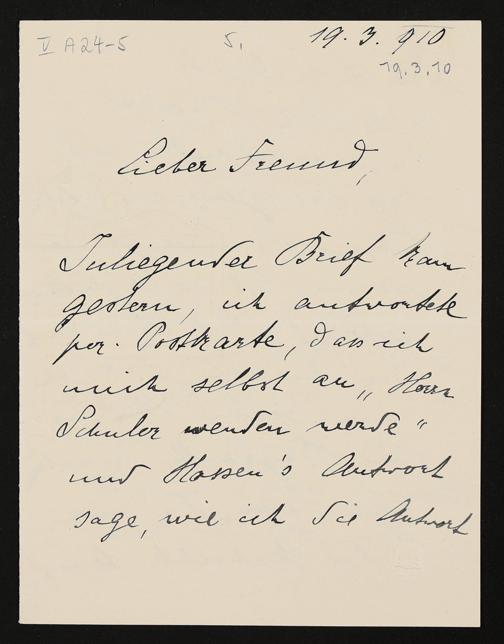 V A24-5
5.
19. 3. 910
19.3.10
Lieber Freund,
Inliegender Brief kam
gestern, ich antwortete
per. Postkarte, dass ich
mich selbst an „Herrn
Schuler wenden werde“
und Hassen's Antwort
sage, wie ich die Antwort